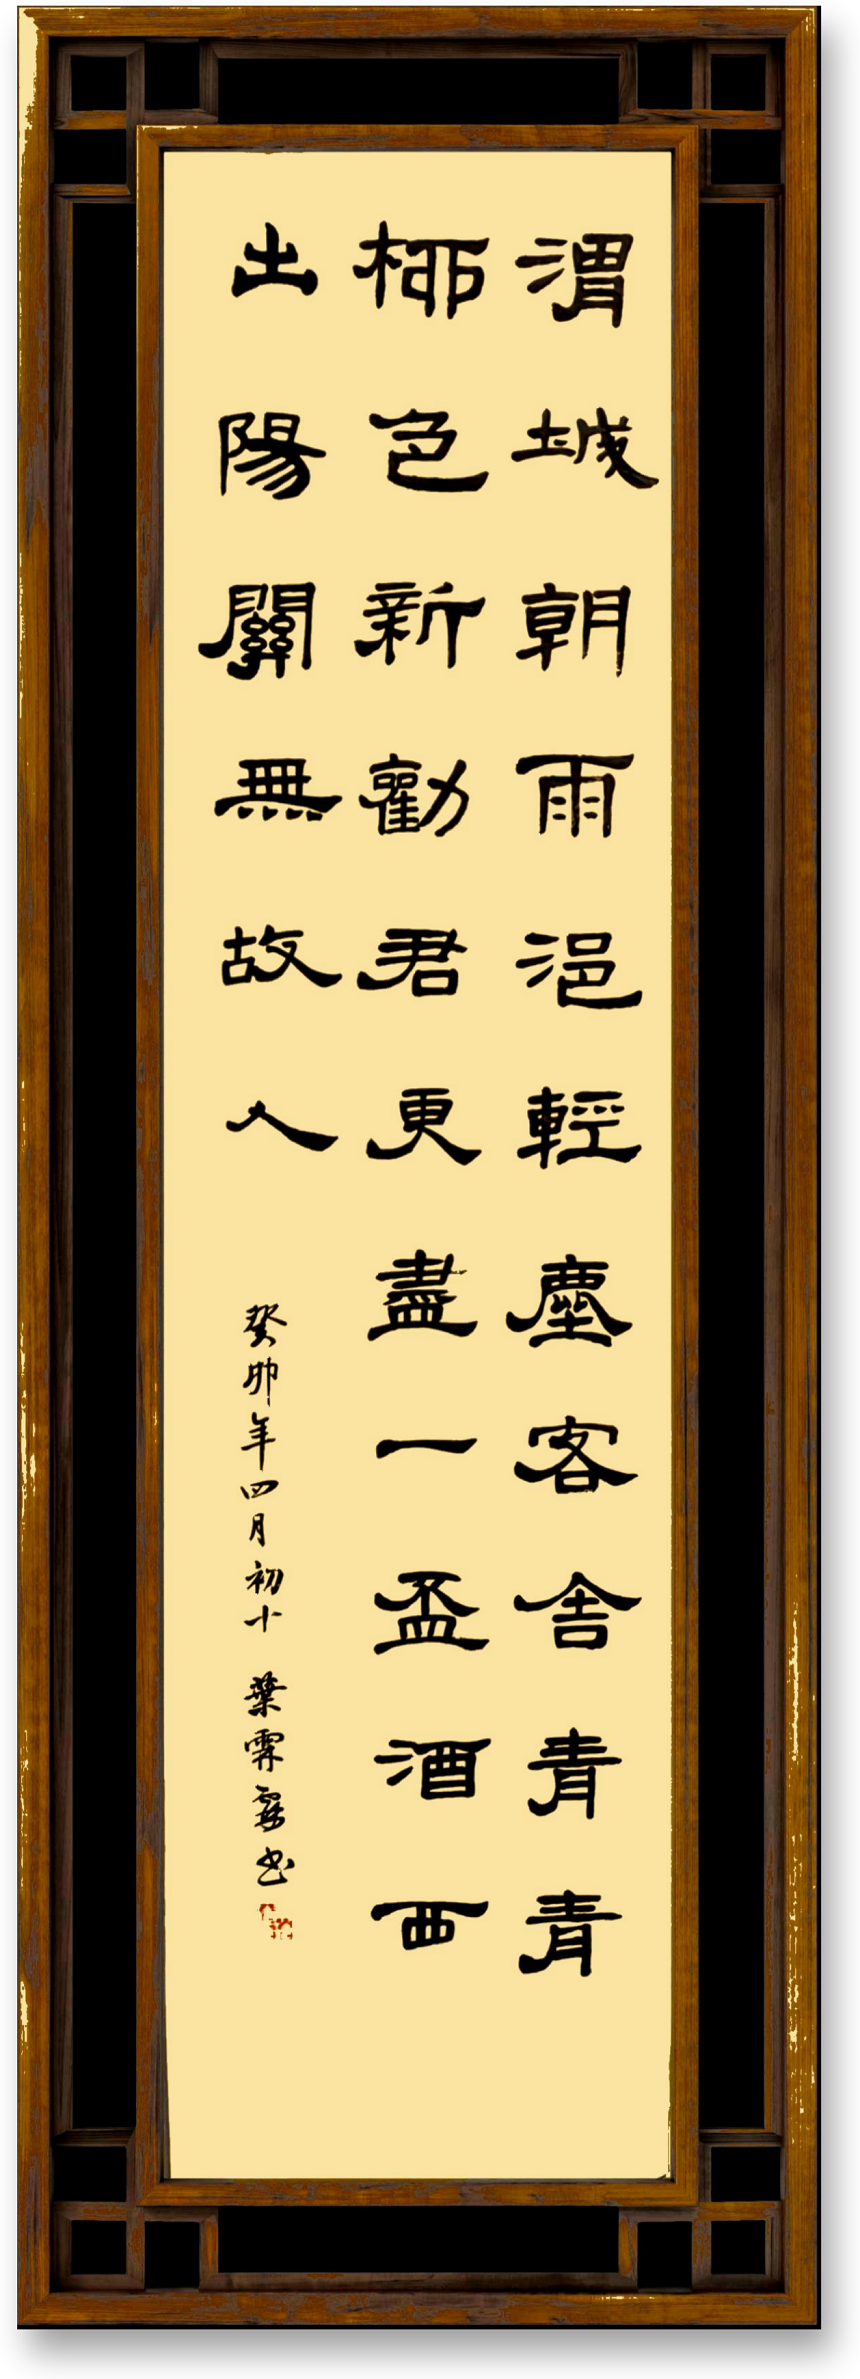 渭城朝雨浥輕塵客舍青青
柳色新勸君更盡一盃酒西
出陽關無故人
癸卯年四月初十 葉霖书